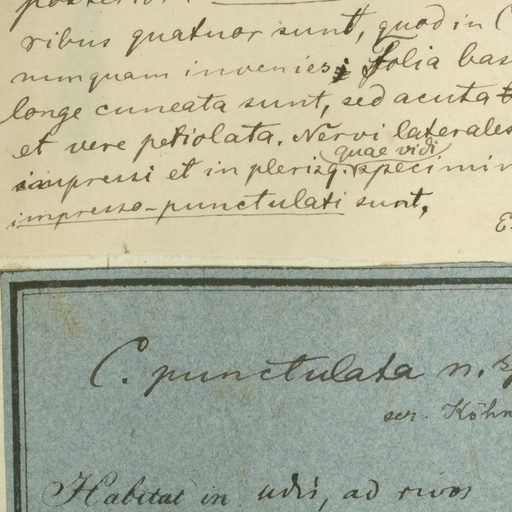 ribus quatuor sunt, quod in C
nunquam invenies; Folia bas
longe cuneata sunt, sed acuta
et vere petiolata. Nervi laterales
quae vidi
impressi et in plerisq. specimin
impresso-punctulati sunt.
C. punctulata n. sp
scr. Köhn
Habitat in udis, ad rivos